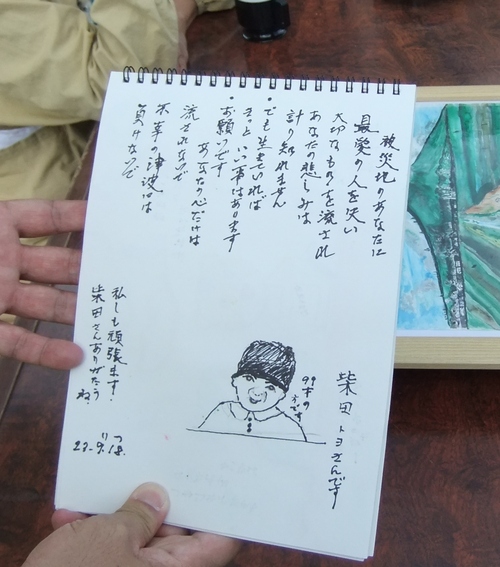 被災地のあなたに
最愛の人を失い
大切なものを流され
あなたの悲しみは
計り知れません
・でも生きていれば
きっといい事はあります
・お願いです
あなたの心だけは
流されないで
不幸の津波には
負けないで
柴田トヨさんです
99才の
方です
私しも頑張ます!
柴田さんありがとう
ね。
23.9.18.